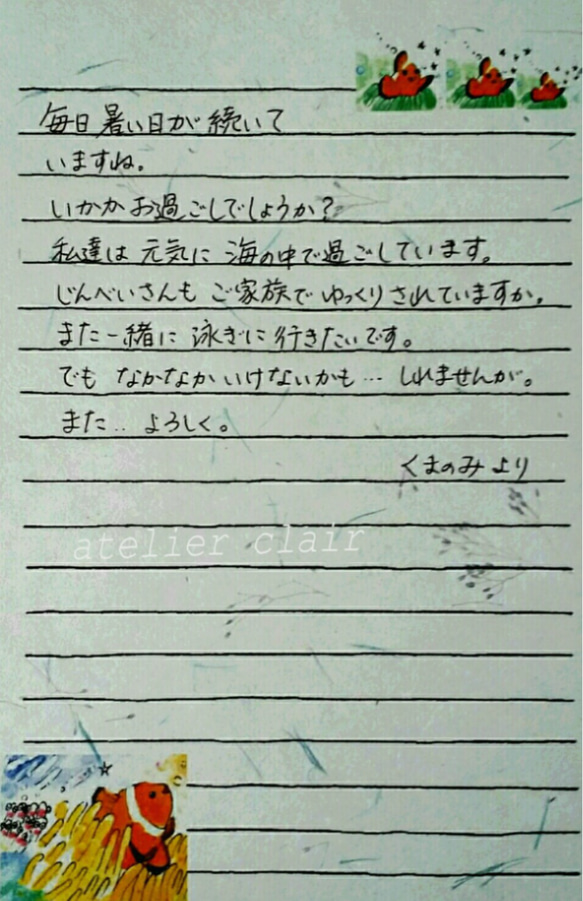 毎日暑い日が続いて
いますね。
いかがお過ごしでしょうか?
私達は元気に海の中で過ごしています。
じんべいさんもご家族でゆっくりされていますか。
また一緒に泳ぎに行きたいです。
でもなかなかいけないかも… しれませんが。
また‥よろしく。
くまのみより
atelier clair